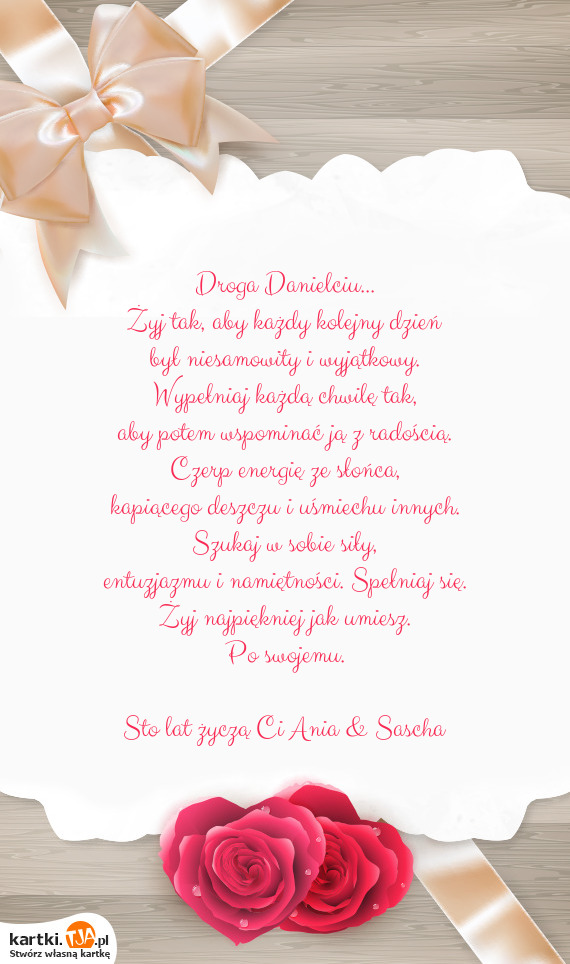 Droga Danielciu...
Żyj tak, aby każdy kolejny dzień
był niesamowity i wyjątkowy.
Wypełniaj każdą chwilę tak,
aby potem wspominać ją z radością.
Czerp energię ze słońca,
kapiącego deszczu i uśmiechu innych.
Szukaj w sobie siły,
entuzjazmu i namiętności. Spełniaj się.
Żyj najpiękniej jak umiesz.
Po swojemu.
Sto lat życzą Ci Ania & Sascha
kartki.TJA.pl
Stwórz własną kartkę